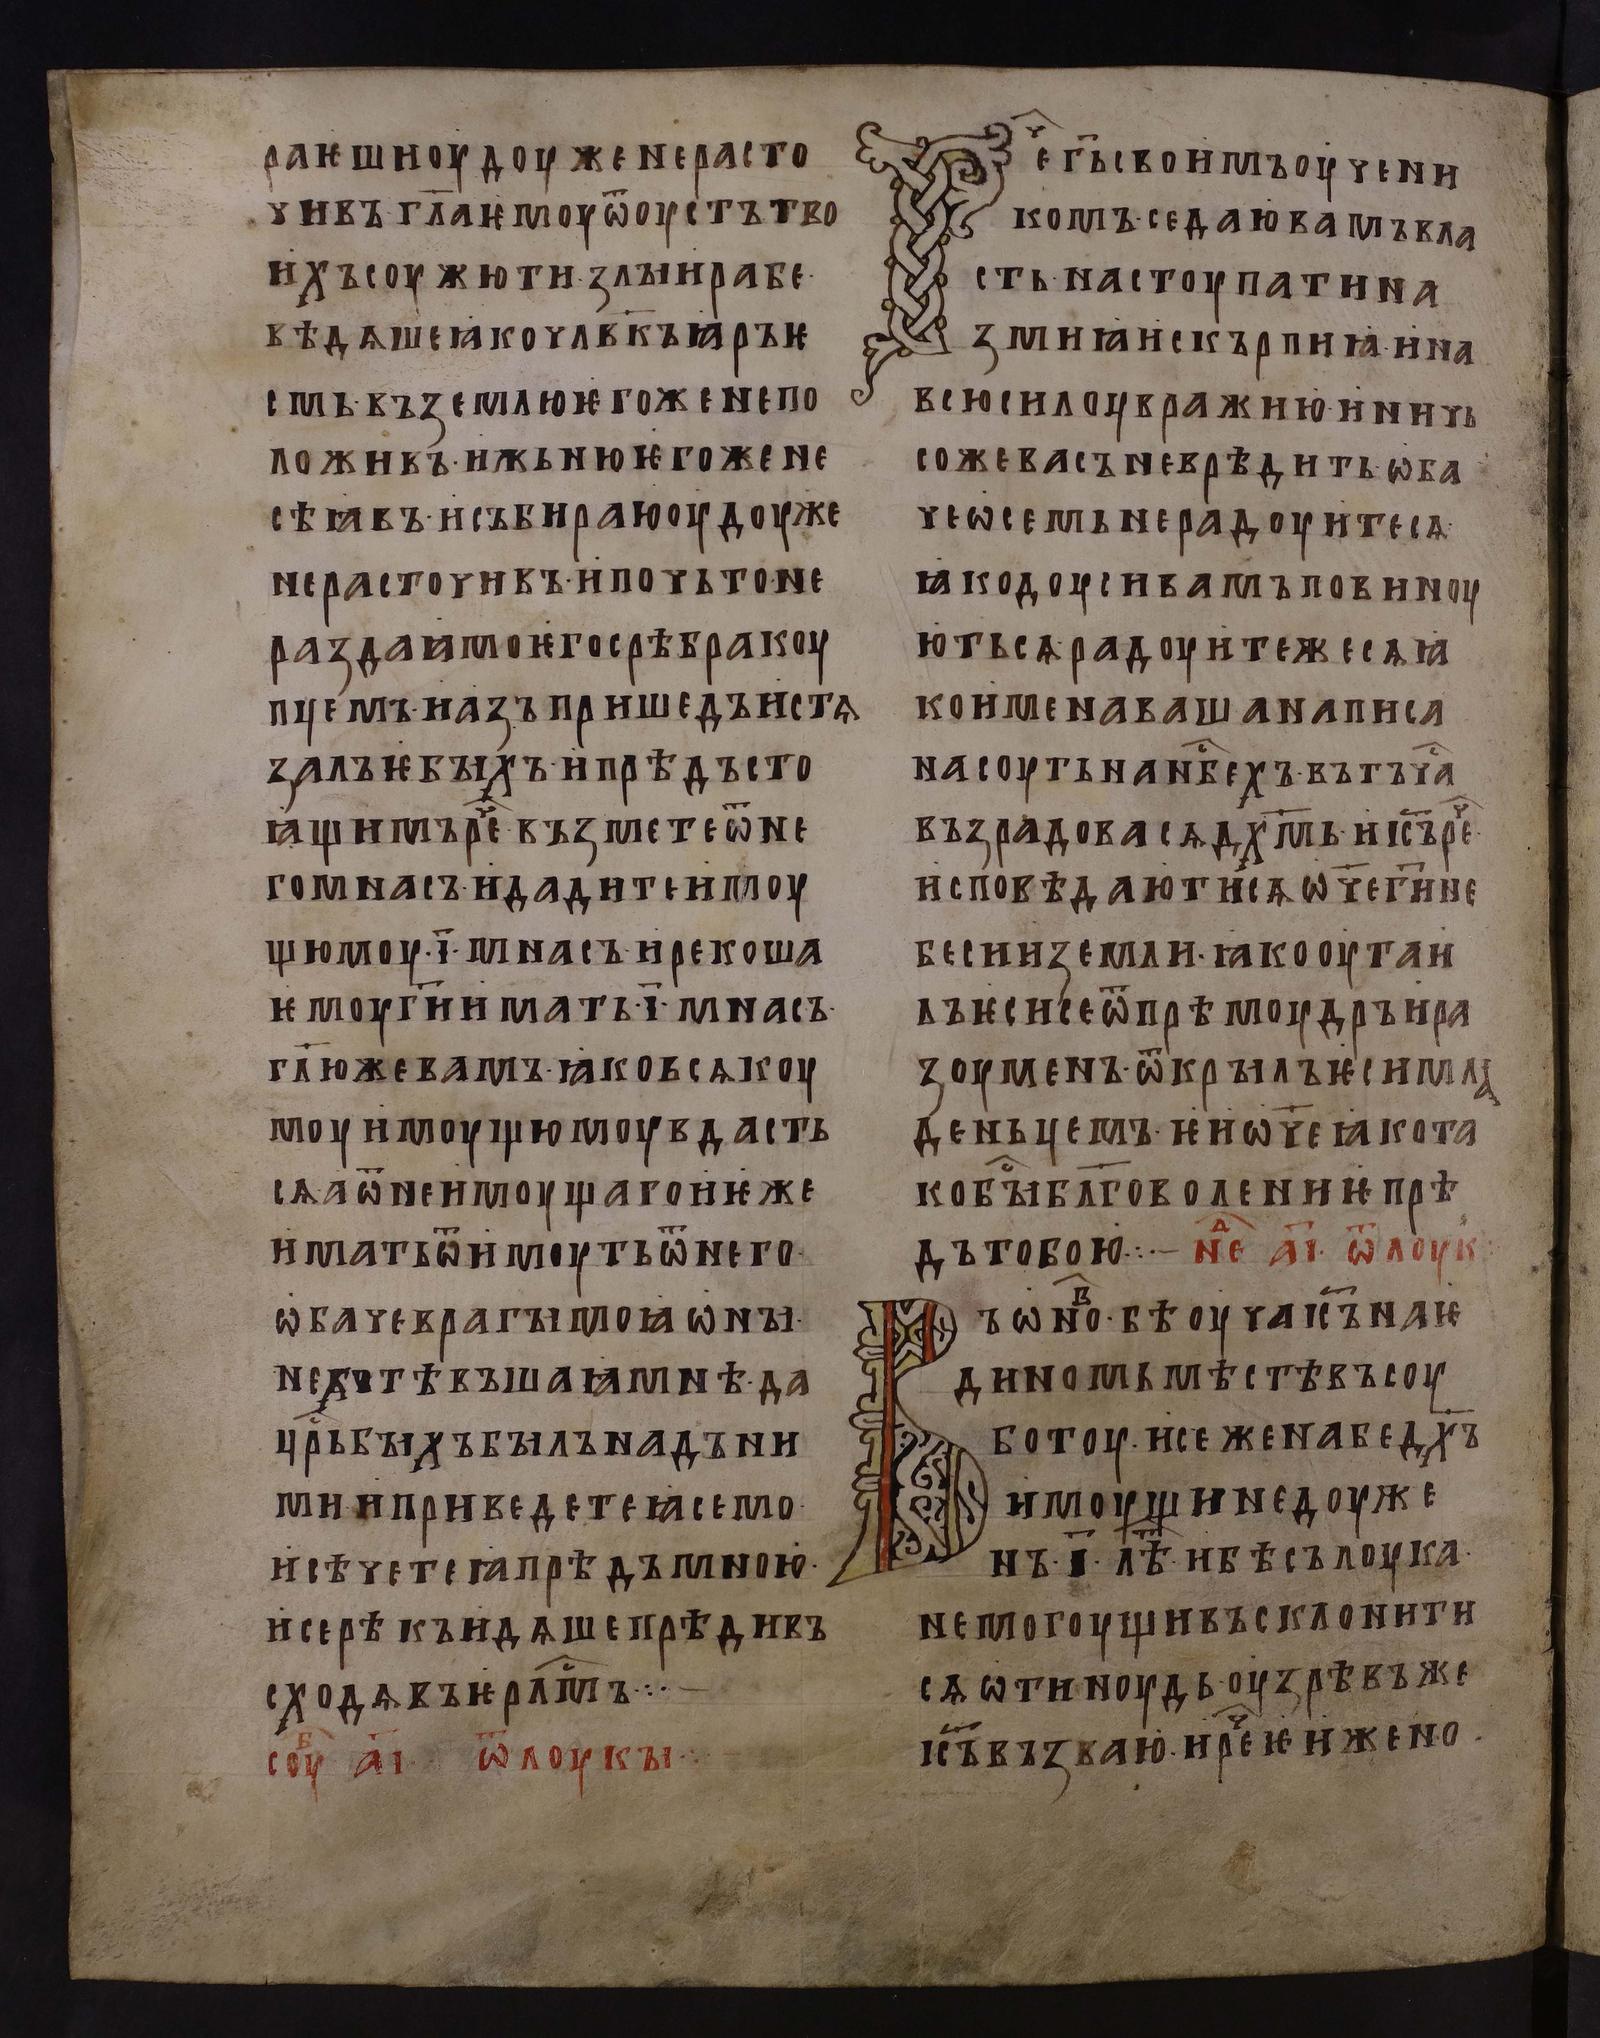 раѥши оу доуже не расто
чивъ гл҃а ѥмоу ѿ оустъ тво
ихъ соужю ти злыи рабе·
вѣдѧше ꙗко ч҃лвкъ ꙗръ ѥ
смь· възємлю ѥгоже не по
ложивъ· и жьню ѥгоже не
сѣꙗвъ· и събираю оу доуже
не расточивъ· и почьто не
раздаꙗ моѥго срѣбра коу
пцемъ· и азъ пришедъ истѧ
залъ ѥ быхъ· и прѣдъсто
ꙗщимъ рⷱ҇е· възмете ѿ не
го мнасъ· и дадите и имоу
щюмоу· і҃· мнасъ· и рекоша
ѥмоу г҃и имать· і҃· мнасъ·
гл҃ю же вамъ· ꙗко всѧкоу
моу имоущюмоу вдасть
сѧ а ѿ неимоущаго и ѥже
имать ѿимоуть ѿ него·
ѡбаче врагы моꙗ ѡны·
не хотѣвъшаꙗ мнѣ· да
цр҃ь быхъ былъ надъ ни
ми· и приведете ꙗ семо·
и сѣчете ꙗ прѣдъ мною·
и се рѣкъ идѧше прѣди въ
сходѧ въ ѥрⷭ҇лмъ ⁘ —
соуⷠ а҃і ѿ лоукы ⁘
Рⷱ҇е г҃ь своимъ оучени
комъ· се даю вамъ вла
сть· настоупати на
змиꙗ и скърпиꙗ· и на
всю силоу вражию· и ничь
соже васъ не врѣдить· ѡба
че ѡ семь не радоуитесѧ·
ꙗко доуси вамъ повиноу
ютьсѧ· радоуите же сѧ ꙗ
ко имена ваша написа
на соуть на нб҃ⷭехъ· въ тъ чⷭ҇а
възрадовасѧ дх҃мь· и іс҃ъ рⷱ҇е·
исповѣдаю ти сѧ ѡч҃е г҃и не
беси и земли· ꙗко оутаи
лъ ѥси се ѿ прѣмоудръ и ра
зоуменъ· ѿкрылъ ѥси мла
деньцемъ· ѥи ѡч҃е ꙗко та
ко бⷭ҇ы бл҃говолениѥ прѣ
дъ тобою ⁘ — нⷣе а҃і· ѿ лоук
Въ ѡнⷪ҇о· бѣ оуча іс҃ъ на ѥ
диномь мѣстѣ въ соу
ботоу· и се жена бе дх҃ъ
имоущи недоуже
нъ· і҃· лѣⷮ· и бѣ сълоука·
не могоущи въсклонити
сѧ ѡтиноудь· оузрѣвъ же
іс҃ъ възва ю· и рⷱ҇е ѥи жено·